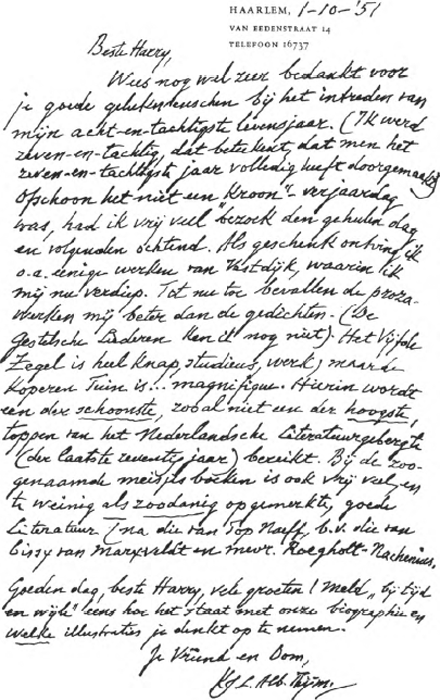 HAARLEM, 1-10-'51
VAN EEDENSTRAAT 14
TELEFOON 16737
Beste Harry,
Wees nog wel zeer bedankt voor
je goede gelukwenschen bij het intreden van
mijn acht-en-tachtigste levensjaar. (Ik werd
zeven-en-tachtig, dat beteekent, dat men het
zeven-en-tachtigste jaar volledig heeft doorgemaakt)
Ofschoon het niet een "Kroon"-verjaardag
was, had ik vrij veel bezoek den geheelen dag
en volgenden ochtend. Als geschenk ontving ik
o.a. eenige werken van Vestdijk, waarin ik
mij nu verdiep. Tot nu toe bevallen de proza-
werken mij beter dan de gedichten. (De
Gestelsche Liederen ken ik nog niet). Het Vijfde
Zegel is heel knap, studieus, werk, maar de
Koperen Tuin is... magnifique. Hierin wordt
een der schoonste, zoo al niet een der hoogste,
toppen van het Nederlandsche Literatuurgebergte
(der laatste zeventig jaar) bereikt. Bij de zoo-
genaamde meisjesboeken is ook vrij veel, en
te weinig als zoodanig opgemerkte, goede
Literatuur (na die van Top Naeff, b.v. die van
Cissy van Marxveldt en mevr. Roegholt-Nachenius.
Goeden dag, beste Harry, vele groeten! Meld "bij tijd
en wijle" eens hoe het staat met onze biographie en
welke illustraties je denkt op te nemen.
Je Vriend en Oom,
K.J.L. Alb. Thijm.